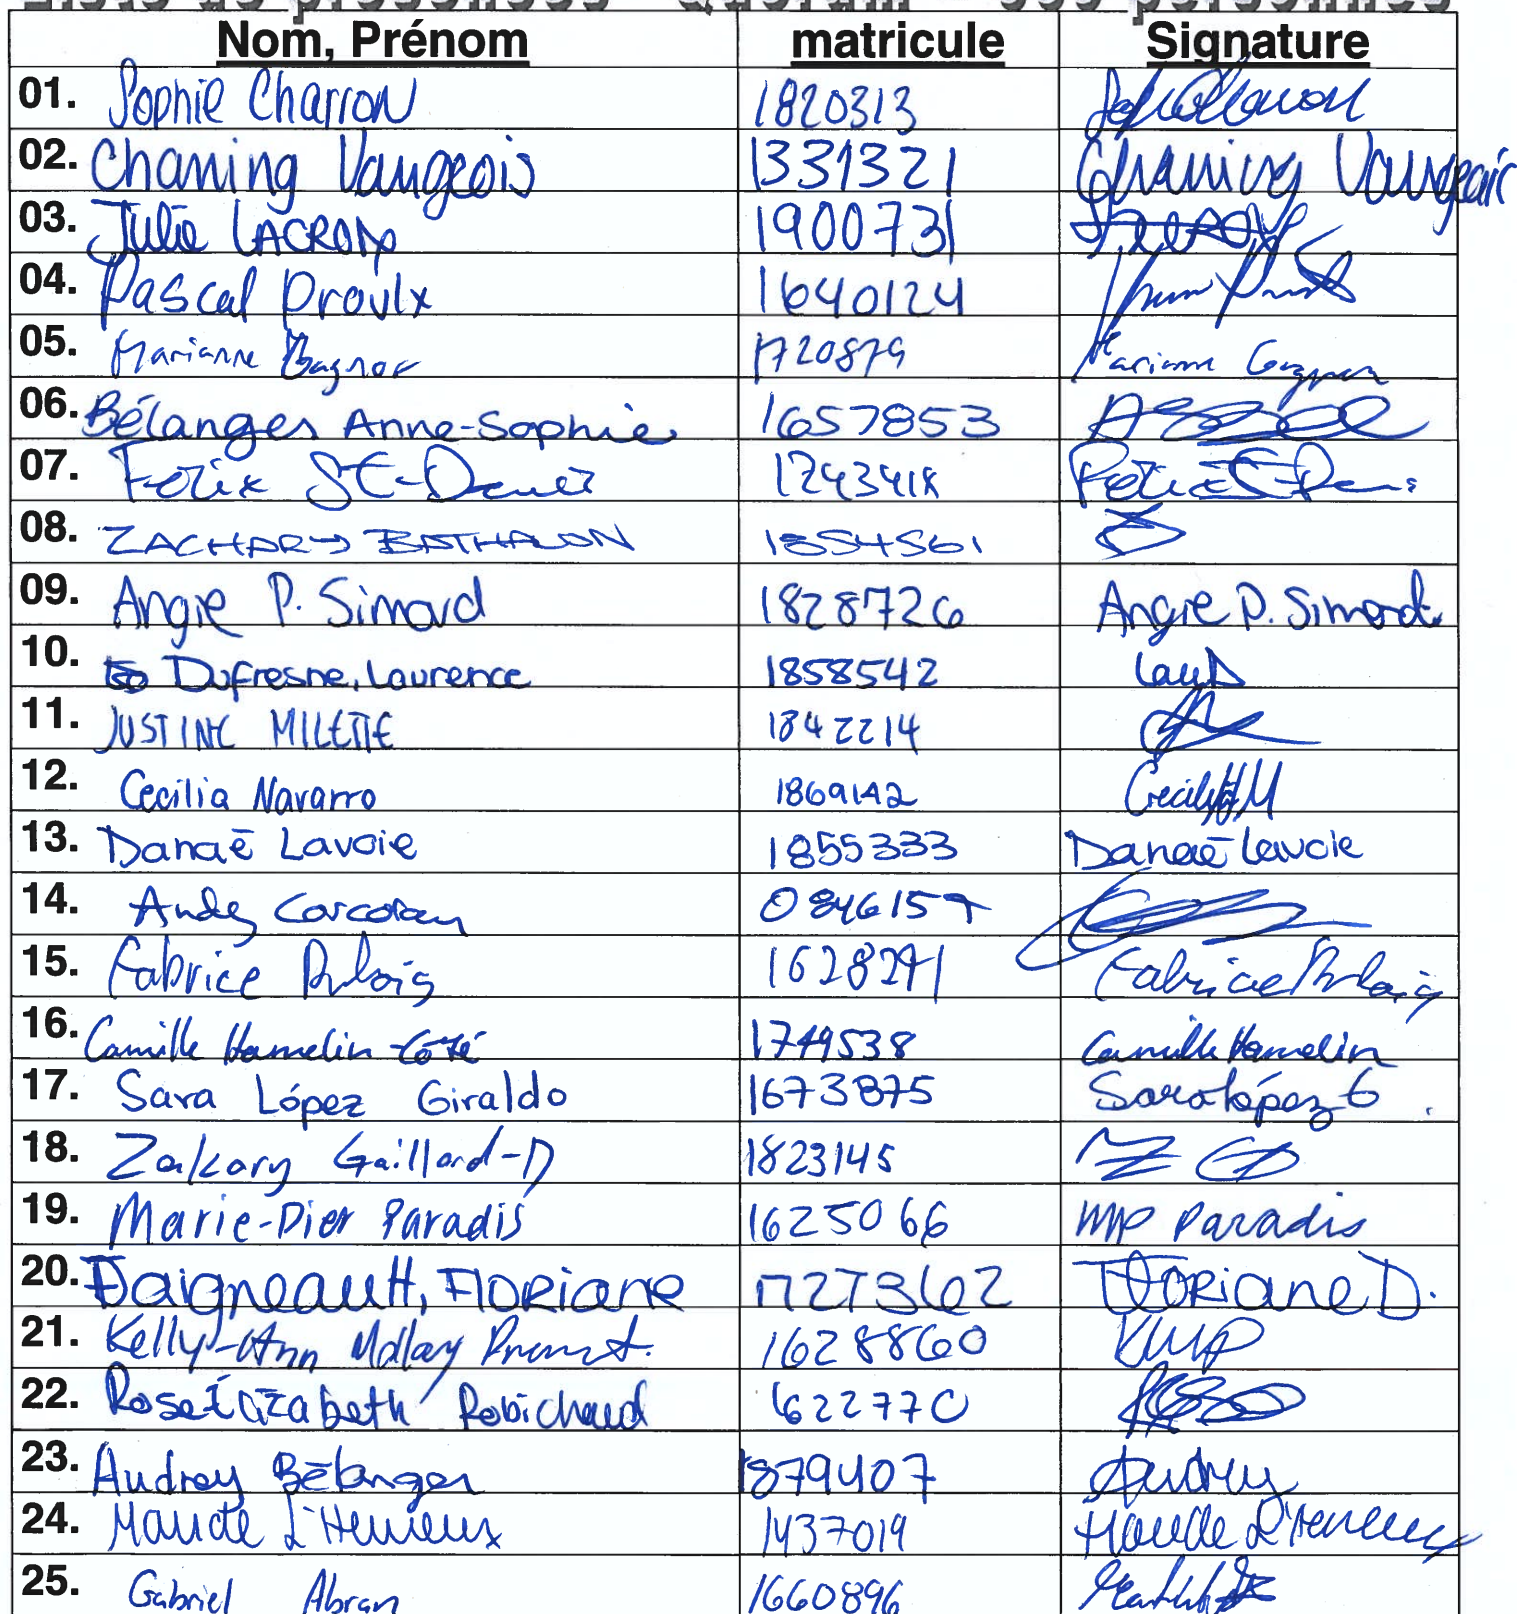 Liste de présences - Quorum - 300 personnes
Nom, Prénom matricule Signature
01. Sophie Charron 1820313
02. Chaning Vaugeois 1331321 Chaning Vaugeois
03. Julie LACROIX 1900731
04. Pascal Proulx 1640124
05. Marianne Gagnon 1720879 Marianne Gagnon
06. Bélanger Anne-Sophie 1657853
07. Félix St-Denis 1243418 Félix St-Denis
08. ZACHARY BATHALON 1854561
09. Angie P. Simard 1828726 Angie P. Simard
10. Dufresne, Laurence 1858542 Lau D
11. JUSTINE MILETTE 1842214
12. Cecilia Navarro 1869142
13. Danaë Lavoie 1855333 Danaë Lavoie
14. Andy Corcoran 0846157
15. Fabrice Dubois 1628291 Fabrice Dubois
16. Camille Hamelin-Côté 1749538 Camille Hamelin
17. Sara López Giraldo 1673875 Sara López G
18. Zakary Gaillard-D 1823145 Z G
19. Marie-Pier Paradis 1625066 MP Paradis
20. Daigneault, Floriane 1727362 Floriane D.
21. Kelly-Ann Mallay 1628860 KMP
22. Rose Élizabeth Robichaud 1622770
23. Audrey Bélanger 1879407 Audrey
24. Maude L'Heureux 1437019 Maude L'Heureux
25. Gabriel Abran 1660896